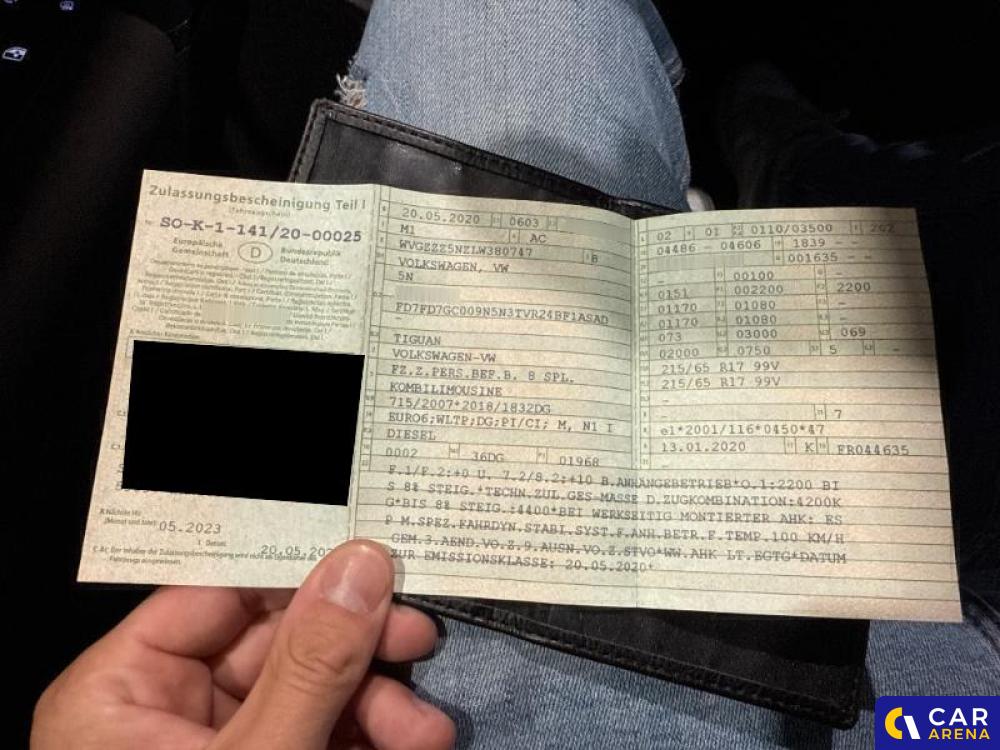 Zulassungsbescheinigung Teil I
(Fahrzeugschein)
Nr. SO-K-1-141/20-00025
Europäische Gemeinschaft
D
Bundesrepublik Deutschland
05.2023
20.05.202
20.05.2020 0603
M1 AC
WVGZZZ5NZLW380747 B
VOLKSWAGEN, VW
5N
FD7FD7GC009N5N3TVR24BF1ASAD
TIGUAN
VOLKSWAGEN-VW
FZ.Z.PERS.BEF.B. 8 SPL.
KOMBILIMOUSINE
715/2007*2018/1832DG
EURO6;WLTP;DG;PI/CI; M, N1 I
DIESEL
0002 36DG 01968
02 01 0110/03500 202
04486 - 04606 1839 - -
001635 - -
- 00100 -
0151 002200 2200
01170 01080 -
01170 01080 -
073 03000 069
02000 0750 5 -
215/65 R17 99V
215/65 R17 99V
-
- 7
e1*2001/116*0450*47
13.01.2020 K FR044635
F.1/F.2:+0 U. 7.2/8.2:+10 B.ANHÄNGEBETRIEB*O.1:2200 BI
S 8% STEIG.*TECHN.ZUL.GES-MASSE D.ZUGKOMBINATION:4200K
G*BIS 8% STEIG.:4400*BEI WERKSEITIG MONTIERTER AHK: ES
P M.SPEZ.FAHRDYN.STABI.SYST.F.ANH.BETR.F.TEMP.100 KM/H
GEM.3.AEND.VO.Z.9.AUSN.VO.Z.STVO*WW.AHK LT.EGTG*DATUM
ZUR EMISSIONSKLASSE: 20.05.2020*
CAR
ARENA